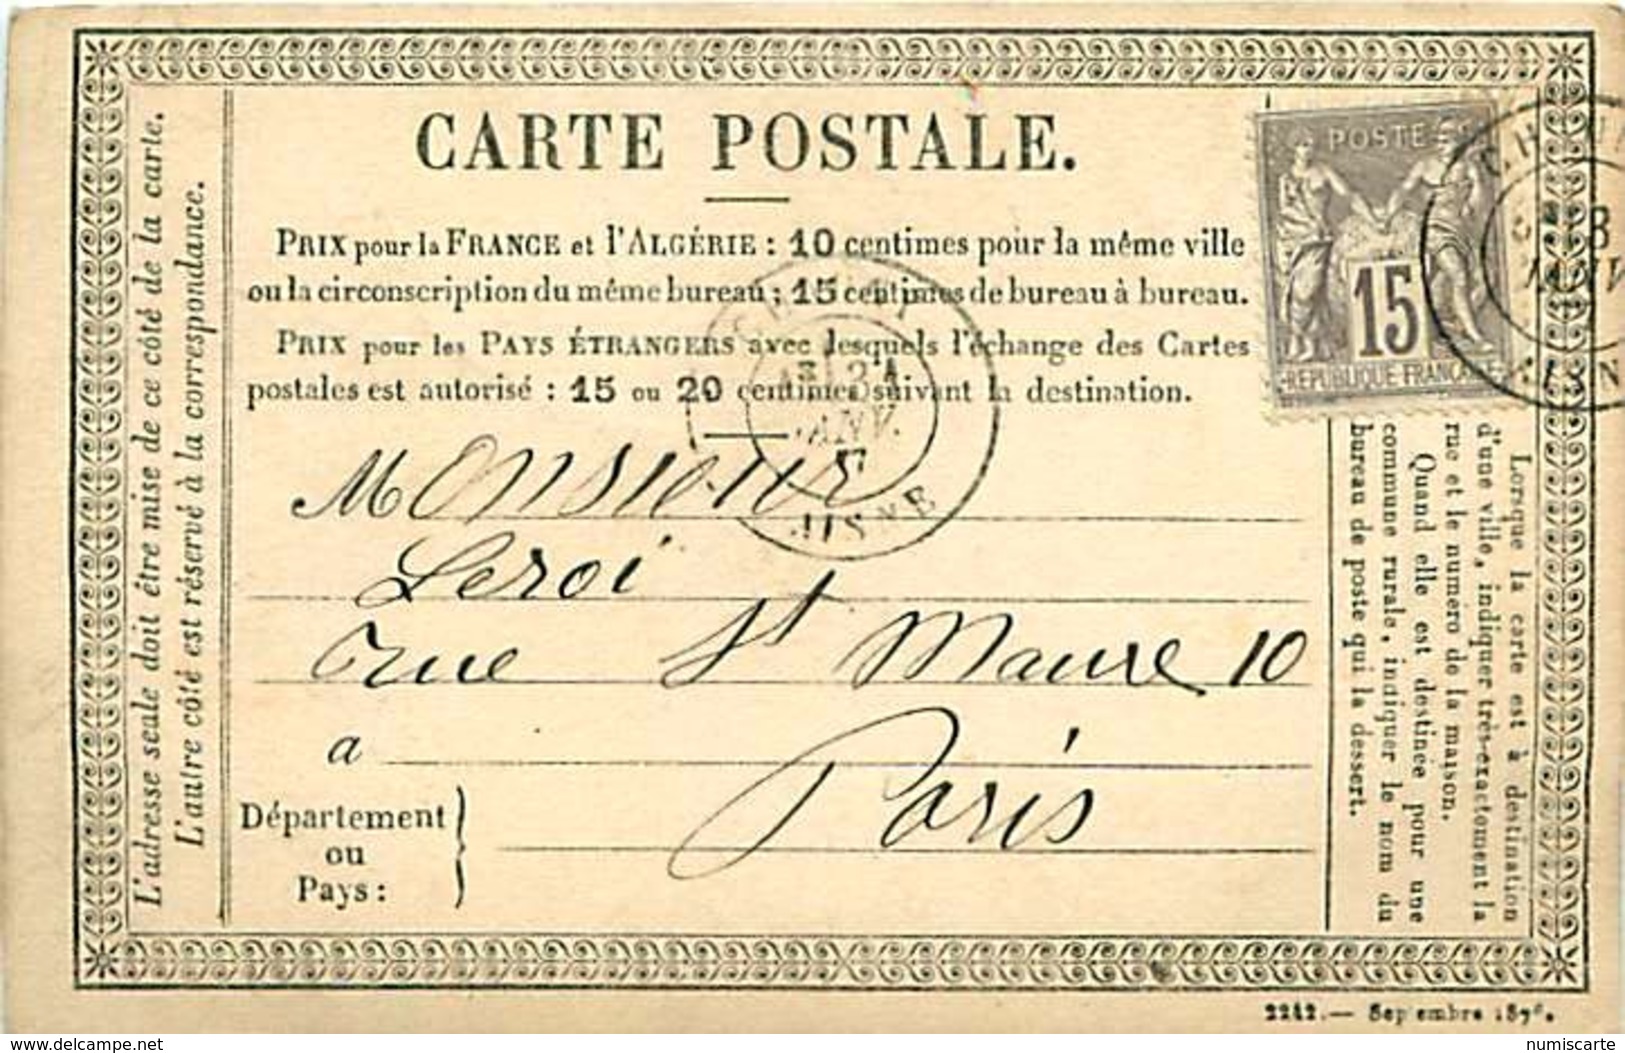 CARTE POSTALE.
PRIX pour la FRANCE et l'ALGÉRIE : 10 centimes pour la même ville
ou la circonscription du même bureau ; 15 centimes de bureau à bureau.
PRIX pour les PAYS ÉTRANGERS avec lesquels l'échange des Cartes
postales est autorisé : 15 ou 20 centimes suivant la destination.
L'adresse seule doit être mise de ce côté de la carte.
L'autre côté est réservé à la correspondance.
POSTE
15
REPUBLIQUE FRANCAISE
JANV.
AISNE
Monsieur
Leroi
rue St Maure 10
a
Paris
Département
ou
Pays :
Lorsque la carte est à destination
d'une ville, indiquer très-exactement la
rue et le numéro de la maison.
Quand elle est destinée pour une
commune rurale, indiquer le nom du
bureau de poste qui la dessert.
2242. — Septembre 1876.
delcampe.net
numiscarte